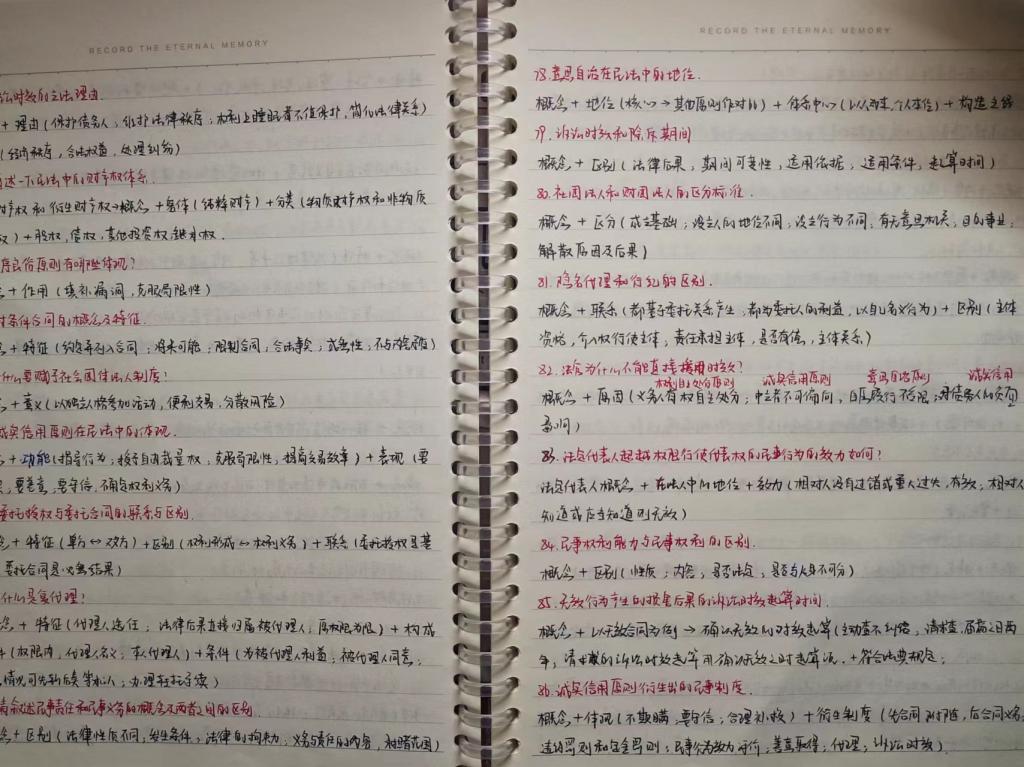 RECORD THE ETERNAL MEMORY
讼时效的立法理由.
+ 理由(保护债务人;维护法律秩序;权利上睡眠者不值保护,简化法律关系)
(经济秩序,合法权益,处理纠纷)
述一下民法中的财产权体系.
财产权和衍生财产权→概念+客体(结释财产)+分类(物质财产权和非物质
权)+股权,债权,其他投资权,继承权.
序良俗原则有哪些体现?
+ 作用(填补漏洞,克服局限性)
附条件合同的概念及特征.
念+特征(约定并列入合同;将来可能;限制合同;合法事实;或然性;不与内容矛盾)
什么要赋予社会团体法人制度?
+ 意义(以独立人格参加活动,便利交易,分散风险)
诚实信用原则在民法中的体现.
+ 功能(指导行为;授予自由裁量权,克服局限性,提高交易效率)+表现(要
,要善意,要守信,确定权利义务)
委托授权与委托合同的联系与区别.
念+特征(单方↔双方)+区别(权利形成↔权利义务)+联系(委托授权是基
委托合同是必然结果)
什么是复代理?
念+特征(代理人选任;法律后果直接归属被代理人;原权限为限)+构成
(权限内,代理人名义,本代理人)+条件(为被代理人利益;被代理人同意,
情况可先斩后奏等私人;办理转托手续)
请叙述民事责任和民事义务的概念及两者之间的区别.
念+区别(法律性质不同,发生条件;法律的拘束力;义务与责任的内容,相对范围)
RECORD THE ETERNAL MEMORY
78.意思自治在民法中的地位.
概念+地位(核心→其他原则作对比)+体系中心(以人为本,个人本位)+构造主线
79.诉讼时效和除斥期间
概念+区别(法律后果,期间可变性,适用依据,适用条件,起算时间)
80.社团法人和财团法人的区分标准.
概念+区分(成立基础;设立人的地位不同;设立行为不同;有无意思机关;目的事业;
解散原因及后果)
81.隐名代理和行纪的区别.
概念+联系(都基于委托关系产生,都为委托人的利益,以自己名义行为)+区别(主体
资格,介入权行使主体,责任承担主体,是否有偿,主体关系)
82.法官为什么不能直接援用时效?
权利自处分原则 诚实信用原则 意思自治原则 诚实信用
概念+原因(义务人有权自主处分;中立者不可偏向,自愿履行不管;对债务人的负面
影响)
83.法定代表人超越权限行使代表权的民事行为的效力如何?
法定代表人概念+在法人中的地位+效力(相对人没有过错或重大过失,有效;相对人
知道或应当知道则无效)
84.民事权利能力与民事权利的区别.
概念+区别(性质;内容;是否法定;是否与人身不可分)
85.无效行为产生的损害后果的诉讼时效起算时间.
概念+以无效合同为例→确认无效的时效起算(主动查不纠络,请相查,届满之日两
年,请求权的诉讼时效起算用确认无效之时起算说,+符合法典规定;
86.诚实信用原则衍生出的民事制度.
概念+体现(不欺瞒;要守信;合理补救)+衍生制度(先合同义务,后合同义务,
违约罚则和定金罚则;民事行为效力评价;善意取得;代理;诉讼时效)